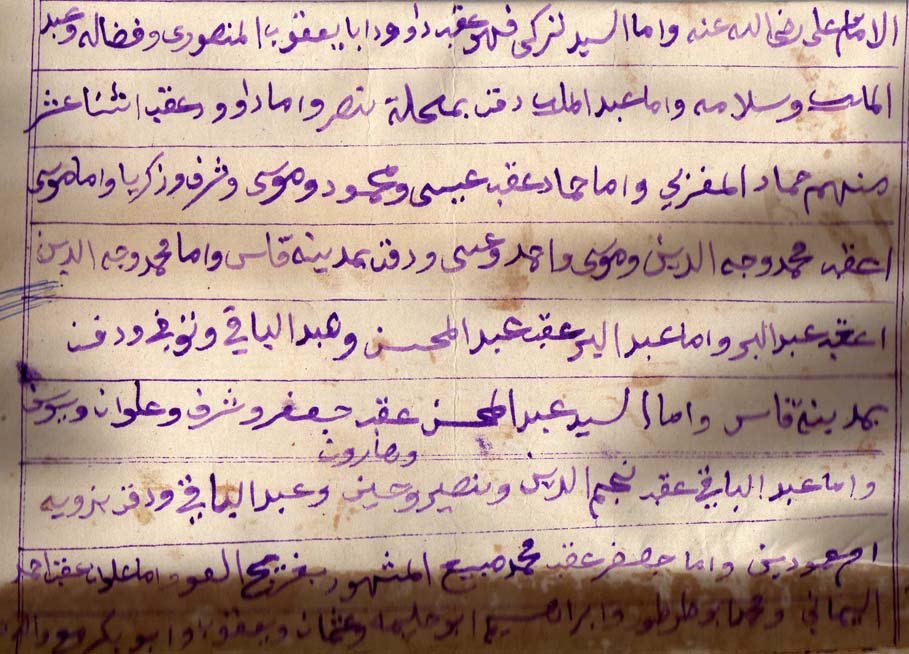 الامام على رضى الله عنه واما السيد تركى فهو عقبه داوود ابا يعقوب المنصورى وفضاله وعبد
الملك وسلامه واما عبد الملك دفن بمحلة بنصر واما داوود عقب اثنا عشر
منهم حماد المغربي واما حماد عقبه عيسى ومحمود وموسى وشرف وزكريا واما موسى
اعقب محمد وجه الدين وموسى واحمد وعيسى ودفن بمدينه قاس واما محمد وجه الدين
اعقبه عبد البر واما عبد البر عقبه عبد المحسن وهبد الباقي وتوفى ودفن
بمدينه قاس واما السيد عبد المحسن عقب جعفر وشرف وعلوان ويوسف
وهاروت
واما عبد الباقي عقب نجم الدين وبنصير وحسين وعبد الباقي ودفن بزويه
واما جعفر عقب محمد صبيع المشهور واما علوان عقب احمد
اليماني وابراهيم ابو حليمه وعثمان ويعقوب وابو بكر